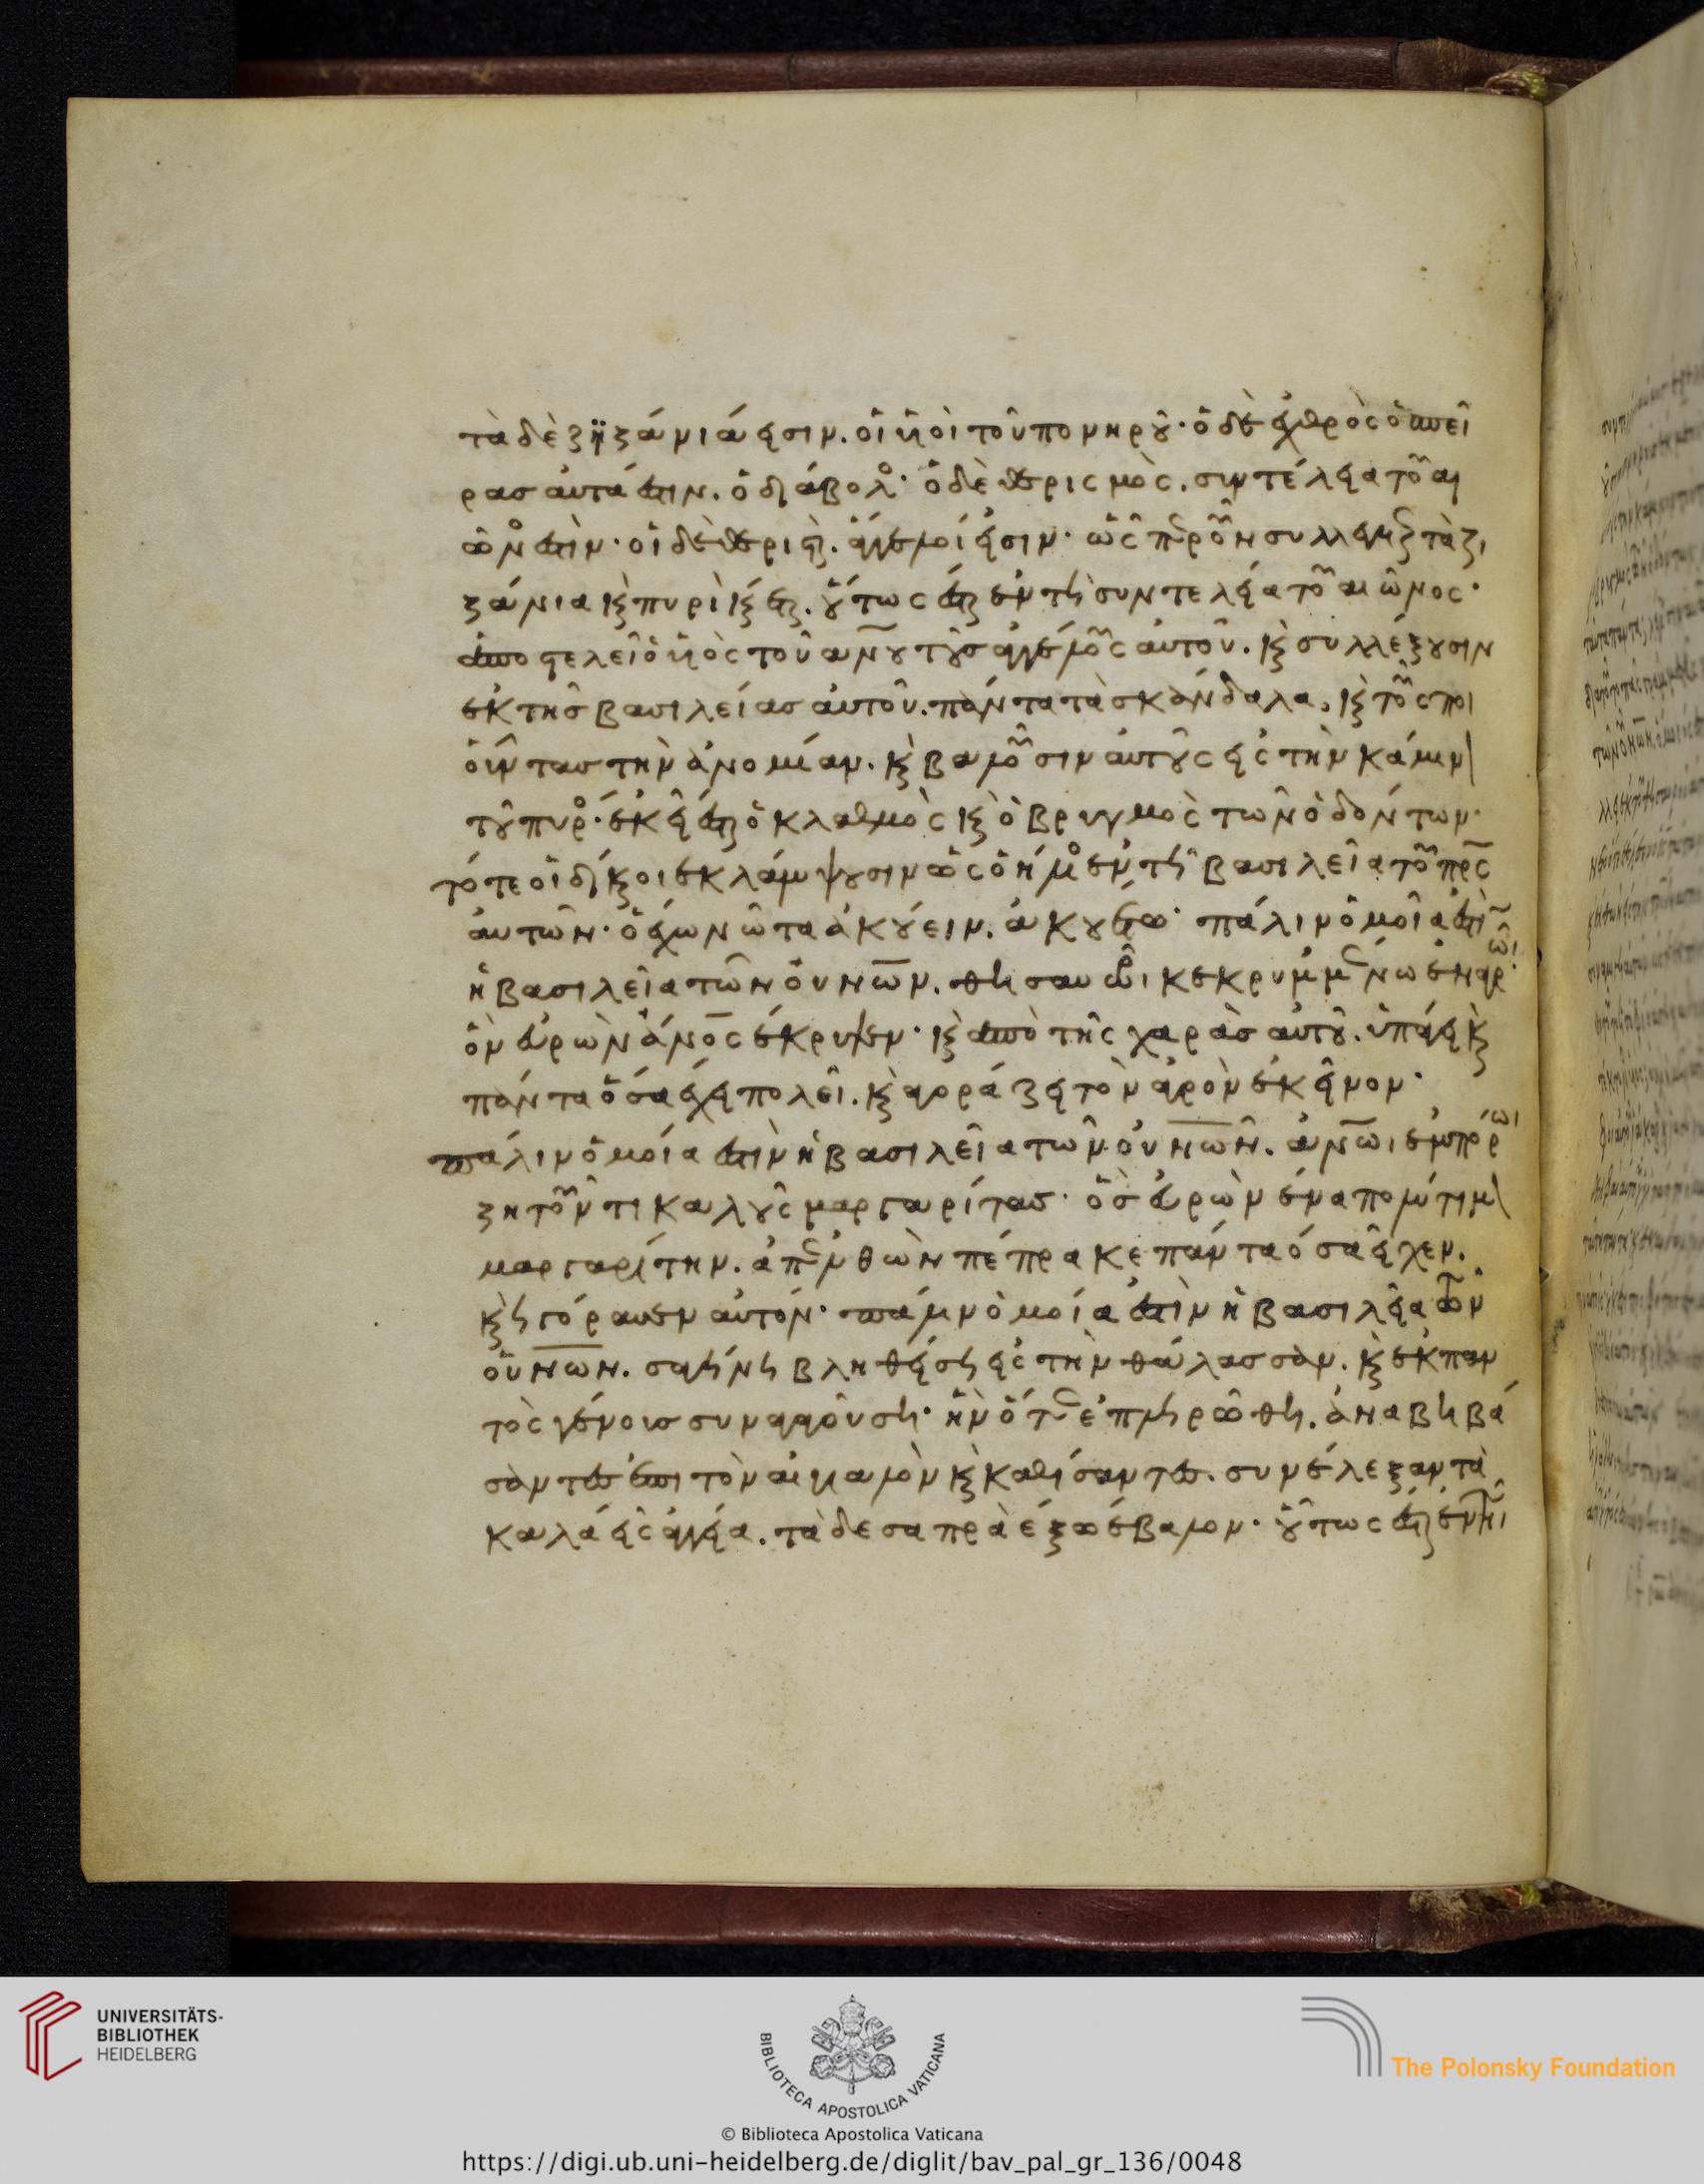 τὰ δὲ ζηζάνιά εισιν. οἱ υἱοὶ τοῦ πονηροῦ· ὁ δὲ ἐχθρὸς ὁ σπεί
ρας αὐτά ἐστιν. ὁ διάβολος· ὁ δὲ θερισμὸς. συντέλεια τοῦ αι
ῶνος ἐστὶν· οἱ δὲ θερισταὶ. ἄγγελοί εἰσιν· ὥσπερ οὖν συλλέγεται τὰ ζι
ζάνια καὶ πυρὶ καίεται. οὕτως ἔσται ἐν τῆ συντελεία τοῦ αἰῶνος·
ἀποστελεῖ ὁ υἱὸς τοῦ ανου τοὺς ἀγγέλους αὐτοῦ. καὶ συλλέξουσιν
ἐκ τῆς βασιλείας αὐτοῦ. πάντα τὰ σκάνδαλα. καὶ τοὺς ποι
οῦντας τὴν ἀνομίαν. καὶ βαλοῦσιν αὐτοὺς εἰς τὴν κάμιν
τοῦ πυρός· ἐκεῖ ἔσται ὁ κλαυθμὸς καὶ ὁ βρυγμὸς τῶν ὀδόντων·
τότε οἱ δίκαιοι ἐκλάμψουσιν ὡς ὁ ἥλιος ἐν τῆ βασιλεία τοῦ πρς
αὐτῶν· ὁ ἔχων ὦτα ἀκούειν. ἀκουέτω· πάλιν ὁμοία ἐστὶν
ἡ βασιλεία τῶν οὐνων. θησαυρῶι κεκρυμμένω ἐν ἀγρῶι·
ὃν εὑρὼν ἄνος ἔκρυψεν· καὶ ἀπὸ τῆς χαρᾶς αὐτοῦ. ὑπάγει καὶ
πάντα ὅσα ἔχει πολεῖ. καὶ ἀγοράζει τὸν ἀγρὸν ἐκεῖνον·
πάλιν ὁμοία ἐστὶν ἡ βασιλεία τῶν οὐνων. ἀνωι ἐμπόρωι
ζητοῦντι καλοὺς μαργαρίτας· ὃς εὑρὼν ἕνα πολύτιμ
μαργαρίτην. ἀπελθὼν πέπρακε πάντα ὅσα εἶχεν.
καὶ ἠγόρασεν αὐτόν· πάλιν ὁμοία ἐστὶν ἡ βασιλεία τῶν
οὐνων. σαγήνη βληθείση εἰς τὴν θάλασσαν. καὶ ἐκ παν
τὸς γένους συναγαγούση· ἣν ὅτε ἐπληρώθη. ἀναβηβά
σαντες ἐπὶ τὸν αἰγιαλὸν καὶ καθίσαντες. συνέλεξαν τὰ
καλὰ εἰς ἀγγεῖα. τὰ δε σαπρὰ ἔξω ἔβαλον· οὕτως ἔσται ἐν τῆι
UNIVERSITÄTS-
BIBLIOTHEK
HEIDELBERG
BIBLIOTECA APOSTOLICA VATICANA
The Polonsky Foundation
© Biblioteca Apostolica Vaticana
https://digi.ub.uni-heidelberg.de/diglit/bav_pal_gr_136/0048